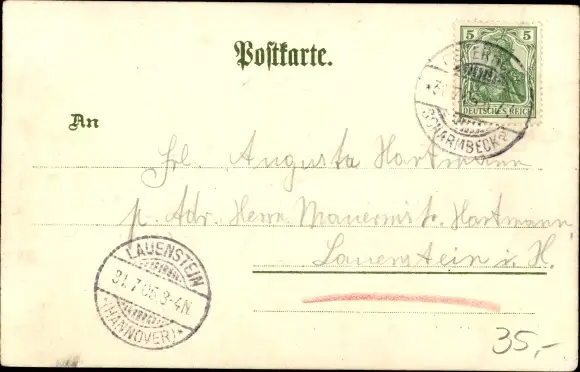 Postkarte.
5 5
DEUTSCHES REICH
SCHARMBECK
An
Frl. Augusta Hartmann
p. Adr. Herrn Mauermstr. Hartmann
Lauenstein i. H.
LAUENSTEIN
31.7.05.3-4N.
(HANNOVER)
35,-